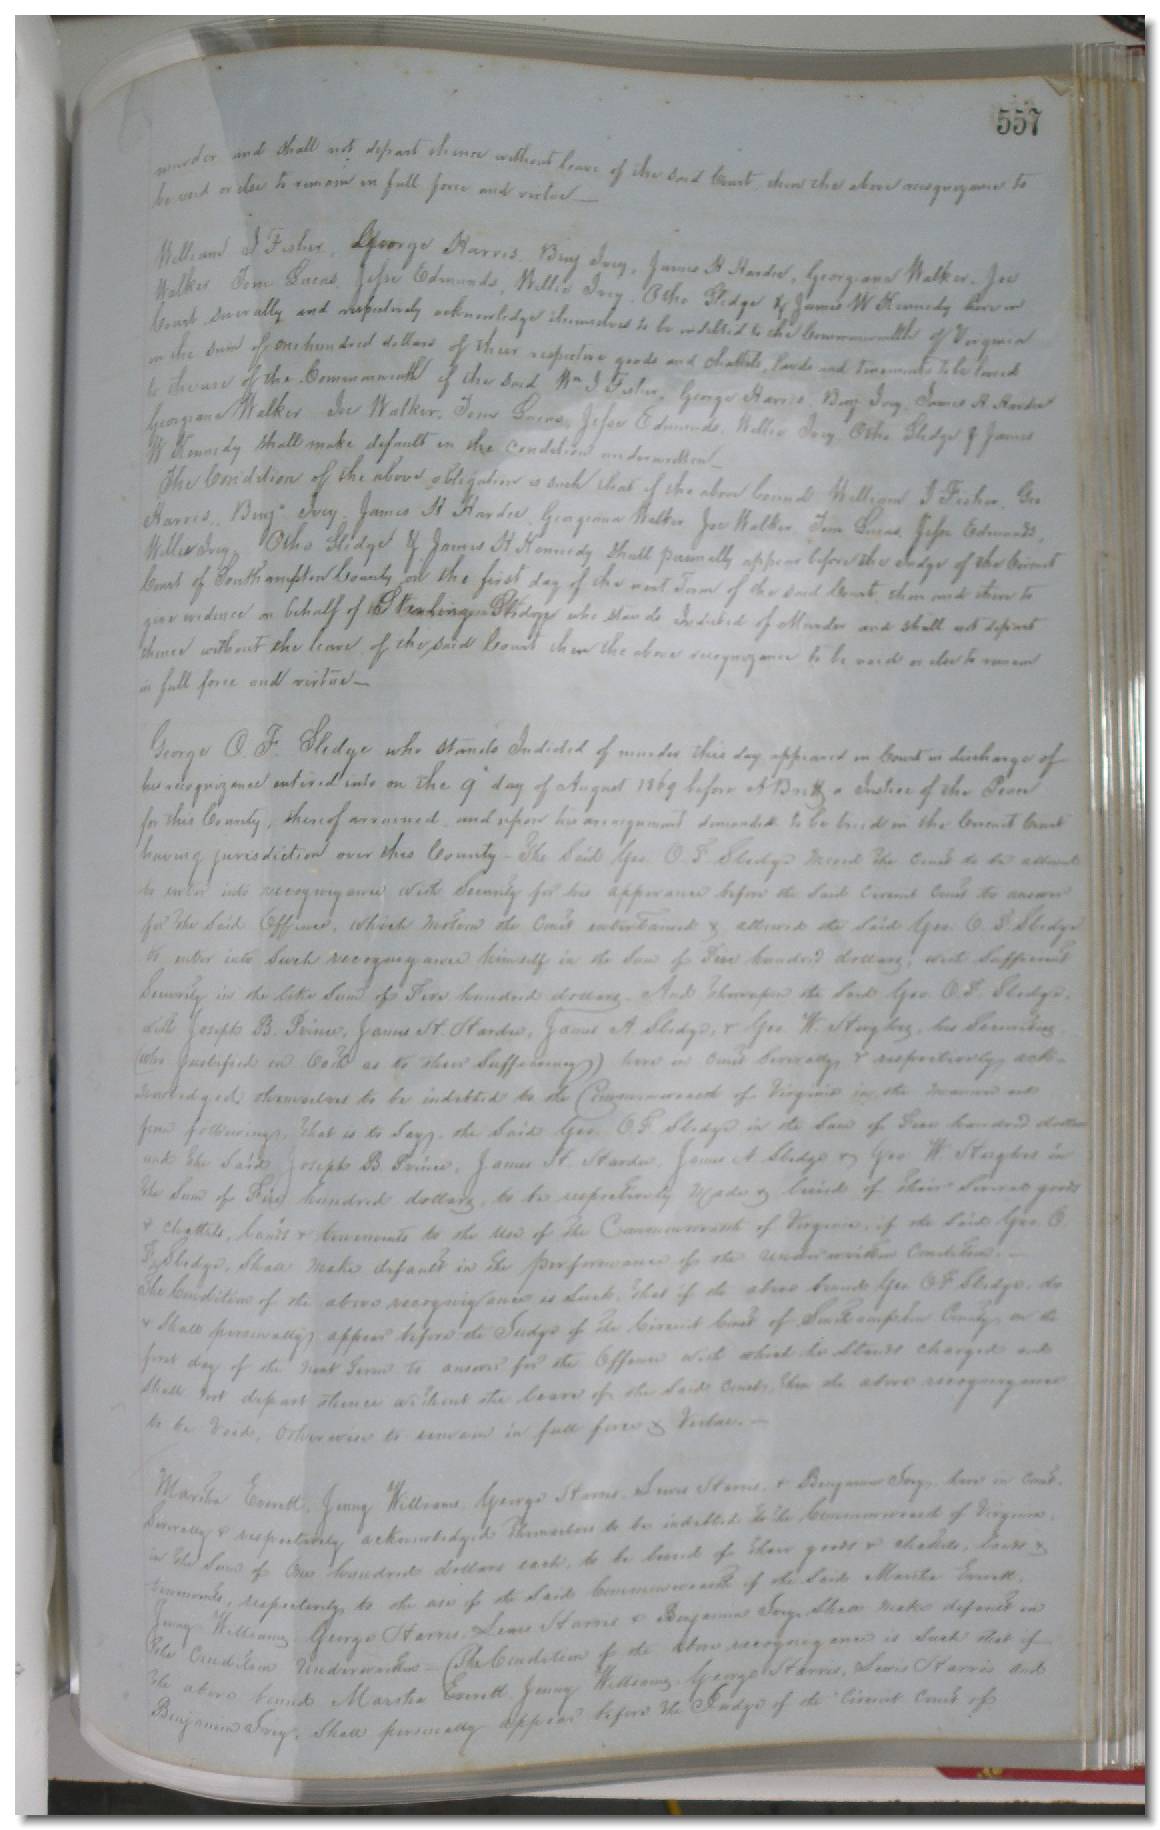 557
murder and shall not depart thence without leave of the said Court, then the above recognizance to
be void or else to remain in full force and virtue —
William J Fisher, George Harris, Benj Ivey, James H Hardee, Georgiana Walker, Joe
Walker Tom Lucas, Jesse Edmunds, Willis Ivey, Otho Sledge & James W Kennedy here in
Court severally and respectively acknowledge themselves to be indebted to the Commonwealth of Virginia
in the sum of one hundred dollars of their respective goods and chattels, lands and tenements to be levied
to the use of the Commonwealth if the said Wm J Fisher, George Harris, Benj Ivey, James H Hardee
Georgiana Walker Joe Walker, Tom Lucas, Jesse Edmunds, Willis Ivey, Otho Sledge & James
W Kennedy shall make default in the condition underwritten —
The Condition of the above obligation is such that if the above bound William J Fisher, Geo
Harris, Benja Ivey, James H Hardee, Georgiana Walker, Joe Walker, Tom Lucas, Jesse Edmunds,
Willis Ivey, Otho Sledge & James H Kennedy shall personally appear before the Judge of the Circuit
Court of Southampton County on the first day of the next Term of the said Court, then and there to
give evidence on behalf of Sledge who stands Indicted of Murder and shall not depart
thence without the leave of the said Court then the above recognizance to be void or else to remain
in full force and virtue —
George O. F. Sledge who stands Indicted of murder this day appeared in Court in discharge of
his recognizance entered into on the 9th day of August 1869 before a Justice of the Peace
for this County, thereof arraigned, and upon his arraignment demanded to be tried in the Circuit Court
having jurisdiction over this County – The Said Geo. O. F. Sledge moved the Court to be allowed
to enter into recognizance with Security for his appearance before the Said Circuit Court to answer
for the Said Offence, which motion the Court entertained & allowed the Said Geo. O. F. Sledge
to enter into Such recognizance himself in the Sum of Five hundred dollars, with Sufficient
Security in the like Sum of Five hundred dollars – And thereupon the Said Geo. O. F. Sledge,
with Joseph B. Prince, James H. Hardee, James A Sledge, & Geo. W. Hughes, his Securities
(who justified on Oath as to their Sufficiency) here in Court Severally & respectively ack-
nowledged themselves to be indebted to the Commonwealth of Virginia in the manner and
form following, that is to Say, the Said Geo. O F Sledge in the Sum of Five hundred dollars
and the Said Joseph B. Prince, James H. Hardee, James A Sledge & Geo W. Hughes in
the Sum of Five hundred dollars, to be respectively made & levied of their Several goods
& chattels, lands & tenements to the use of the Commonwealth of Virginia, if the Said Geo. O.
F. Sledge, Shall make default in the performance of the underwritten Condition. —
The Condition of the above recognizance is Such, that if the above bound Geo O F Sledge, do
& Shall personally appear before the Judge of the Circuit Court of Southampton County on the
first day of the next Term to answer for the Offence with which he Stands charged and
Shall not depart thence without the leave of the Said Court, then the above recognizance
to be Void, Otherwise to remain in full force & Virtue. —
Martha Everett, Jenny Williams, George Harris, Lewis Harris, & Benjamin Ivey, here in Court,
Severally & respectively acknowledged themselves to be indebted to the Commonwealth of Virginia,
in the Sum of One hundred dollars each, to be levied of their goods & chattels, lands &
tenements, respectively to the use of the Said Commonwealth if the Said Martha Everett,
Jenny Williams, George Harris, Lewis Harris & Benjamin Ivey Shall make default in
the Condition Underwritten – The Condition of the above recognizance is Such that if
the above bound Martha Everett, Jenny Williams, George Harris, Lewis Harris and
Benjamin Ivey, Shall personally appear before the Judge of the Circuit Court of